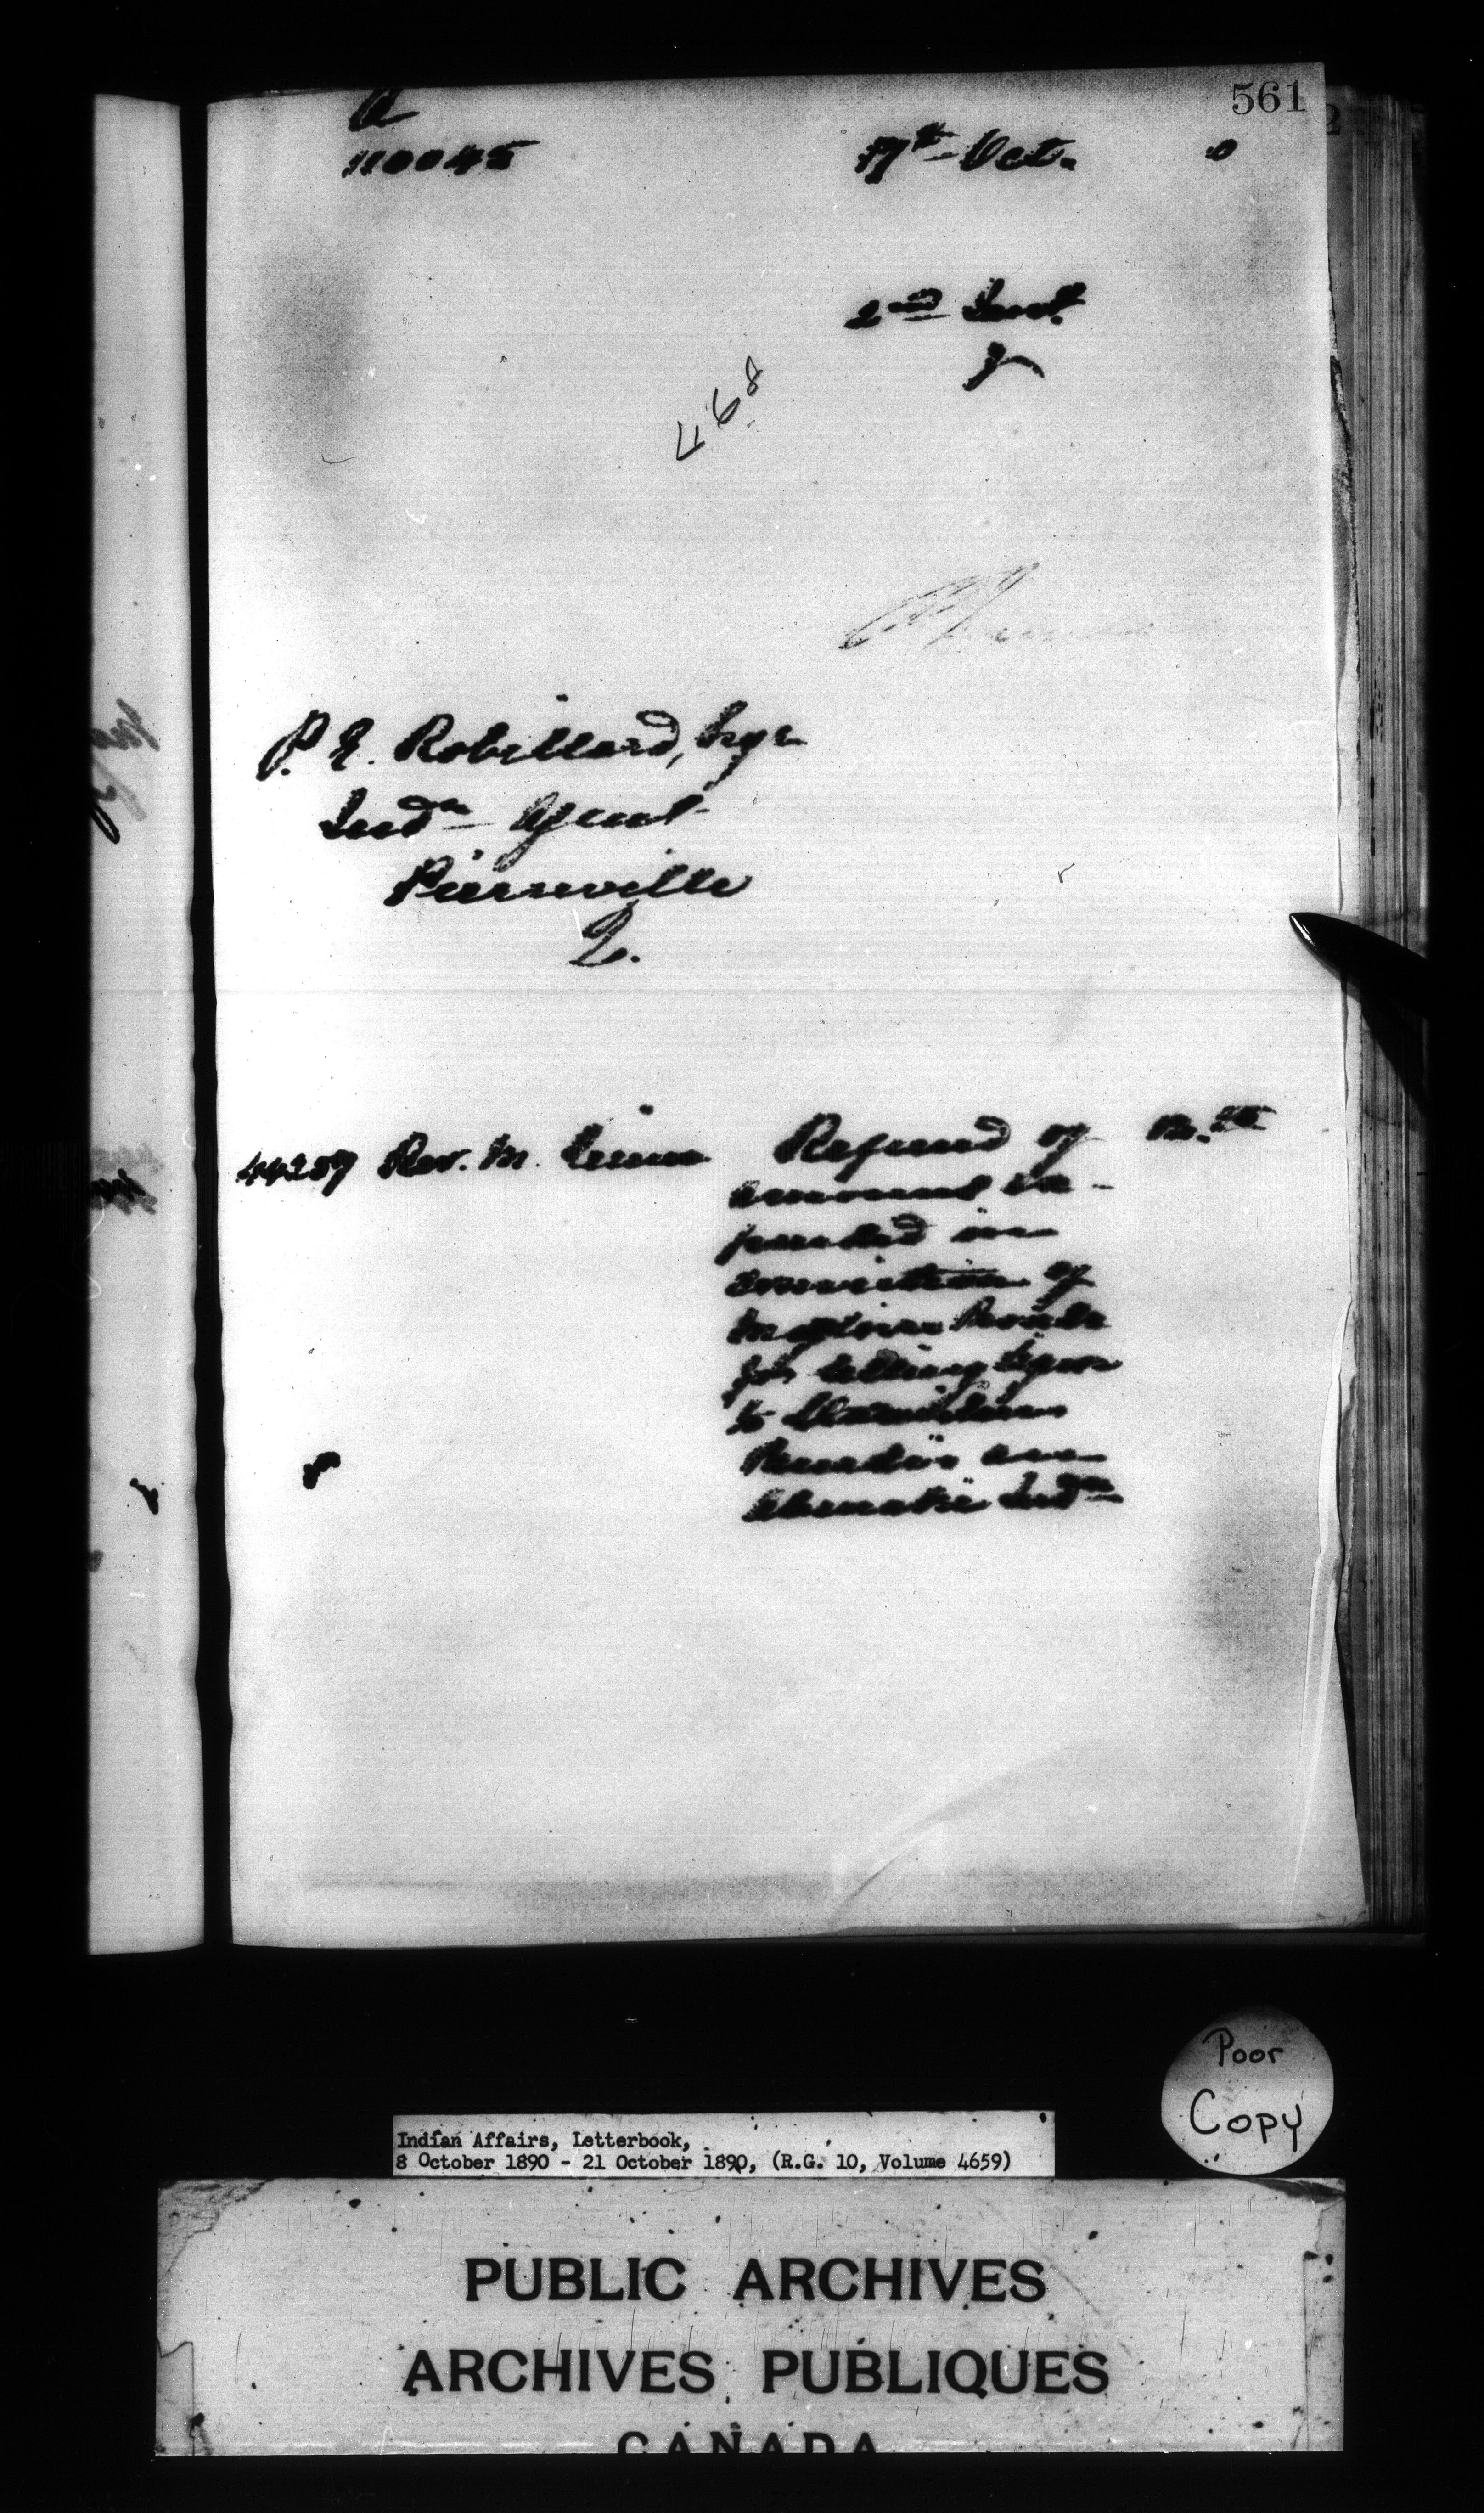 561
110045 17th Oct. 0
2nd Inst.
468
P. E. Robillard, Esqr
Indn Agent
Pierreville
Q.
44257 Rev. M. Refund of
amount ex-
pended in
conviction of
for selling liquor
to
an
Abenakis Indn
Poor
Copy
Indian Affairs, Letterbook,
8 October 1890 - 21 October 1890, (R.G. 10, Volume 4659)
PUBLIC ARCHIVES
ARCHIVES PUBLIQUES
CANADA